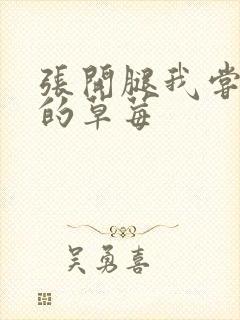 張開腿我嘗
的草莓
吴勇喜